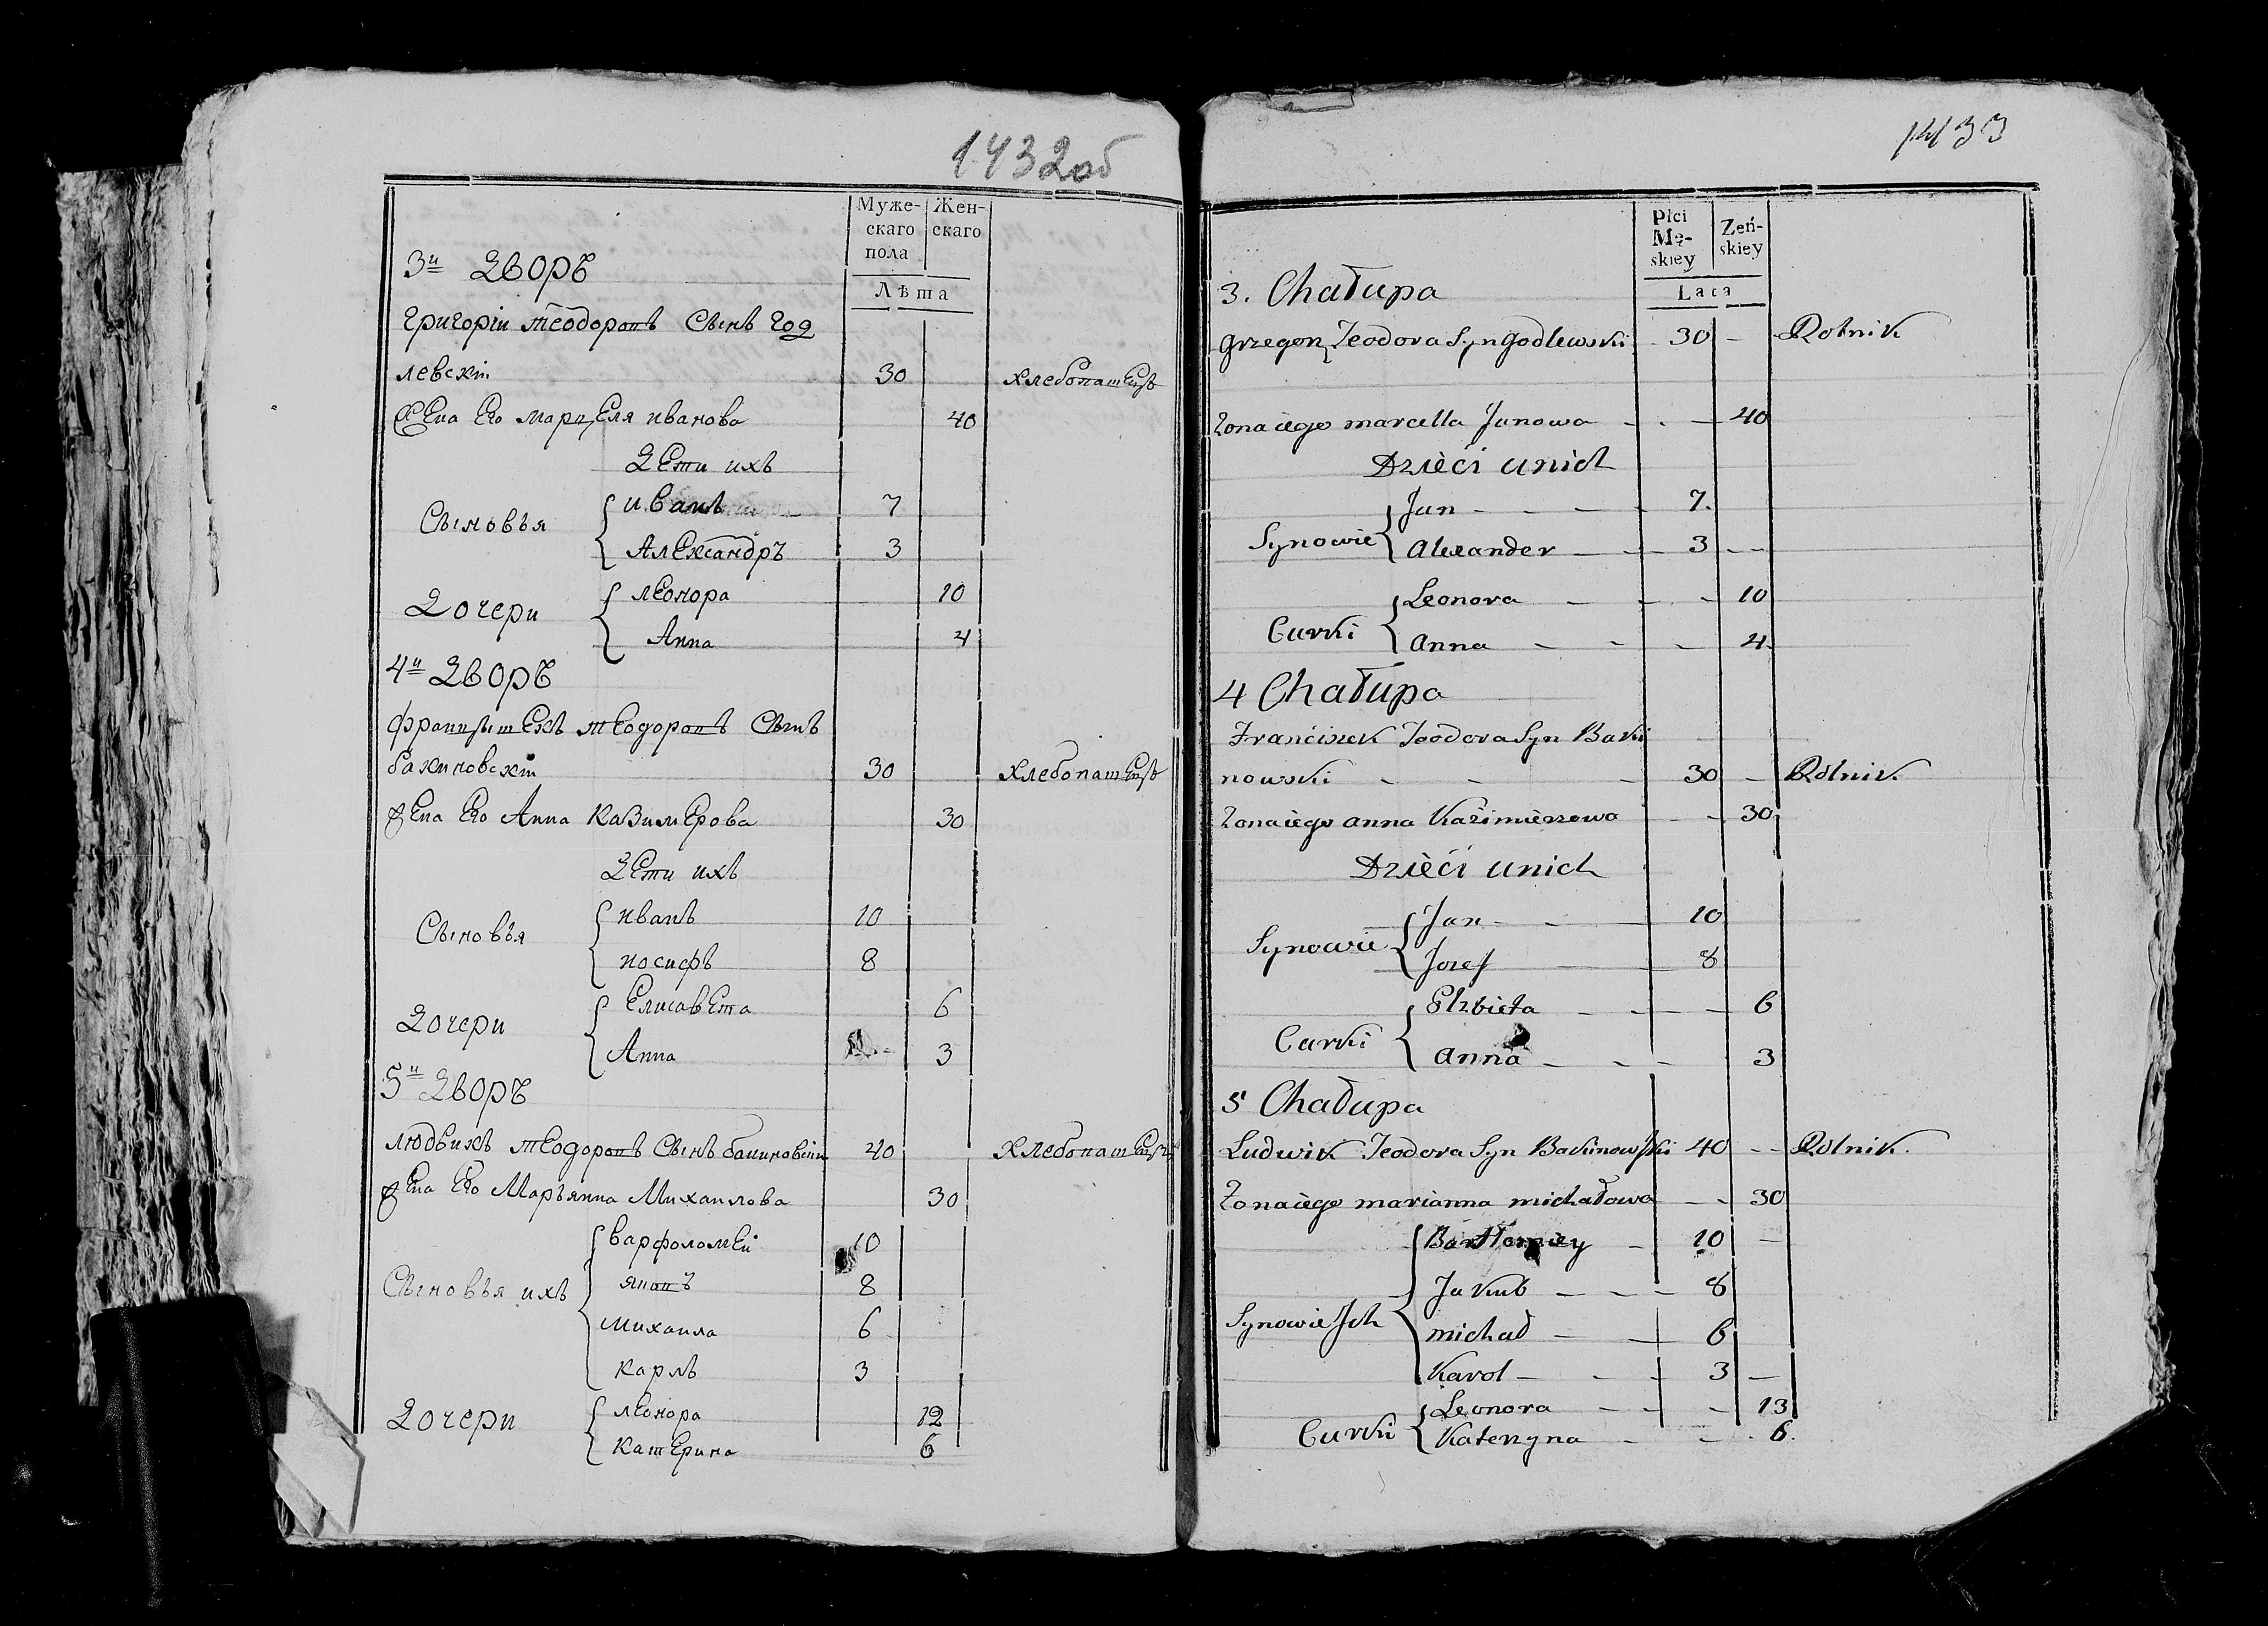 1432об
Муже-
скаго
пола
Жен-
скаго
Лѣта
3й Дворъ
Григоріи теодоровъ Сынъ Год
левскіи 30 хлебопашецъ
Жена Его марцеля иванова 40
Дети ихъ
Сыновья
иванъ 7
Александръ 3
Дочери
леонора 10
Анна 4
4й Дворъ
францишекъ теодоровъ Сынъ
бакиновскіи 30 хлебопашецъ
жена Его Анна казимерова 30
Дети ихъ
Сыновья
иванъ 10
иосифъ 8
Дочери
Елисавета 6
Анна 3
5й Дворъ
людвикъ теодоровъ Сынъ бакиновскіи 40 хлебопашецъ
жена Его Марьянна Михаилова 30
Сыновья ихъ
варфоломей 10
8
михаила 6
карлъ 3
Дочери
леонора 12
катерина 6
1433
Płci
Mę-
skiey
Zeń-
skiey
Lata
3. Chałupa
Grzegorz Teodora Syn Godlewski 30 - Rolnik
Zona iego marcella Janowa - - - 40
Dzieci unich
Synowie
Jan - - - - 7.
Alexander - - 3 - -
Curki
Leonora - - - 10
Anna - - - 4.
4 Chałupa
Franciszek Teodora Syn Baki
nowski - - - 30 - Rolnik
Zona iego anna Kazimierzowa - - 30
Dzieci unich
Synowie
Jan - - - 10
Jozef 8
Curki
Elzbieta - - - 6
Anna - - - 3
5 Chałupa
Ludwik Teodora Syn Bakinowski 40 - - Rolnik.
Zona iego marianna michałowa - - 30
Synowie Jch
Bartłomiey - 10 -
Jakub - - - 8
michał - - 6
Karol - - - 3 -
Curki
Leonora - - - 13
Katerzyna - - - 6.